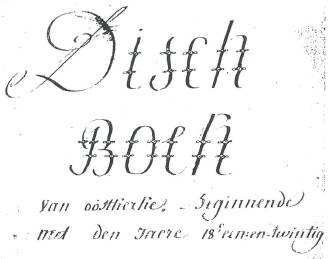 Disch
Boek
van oostkerke. Beginnende
met den Jaere 18 een-en-twintig